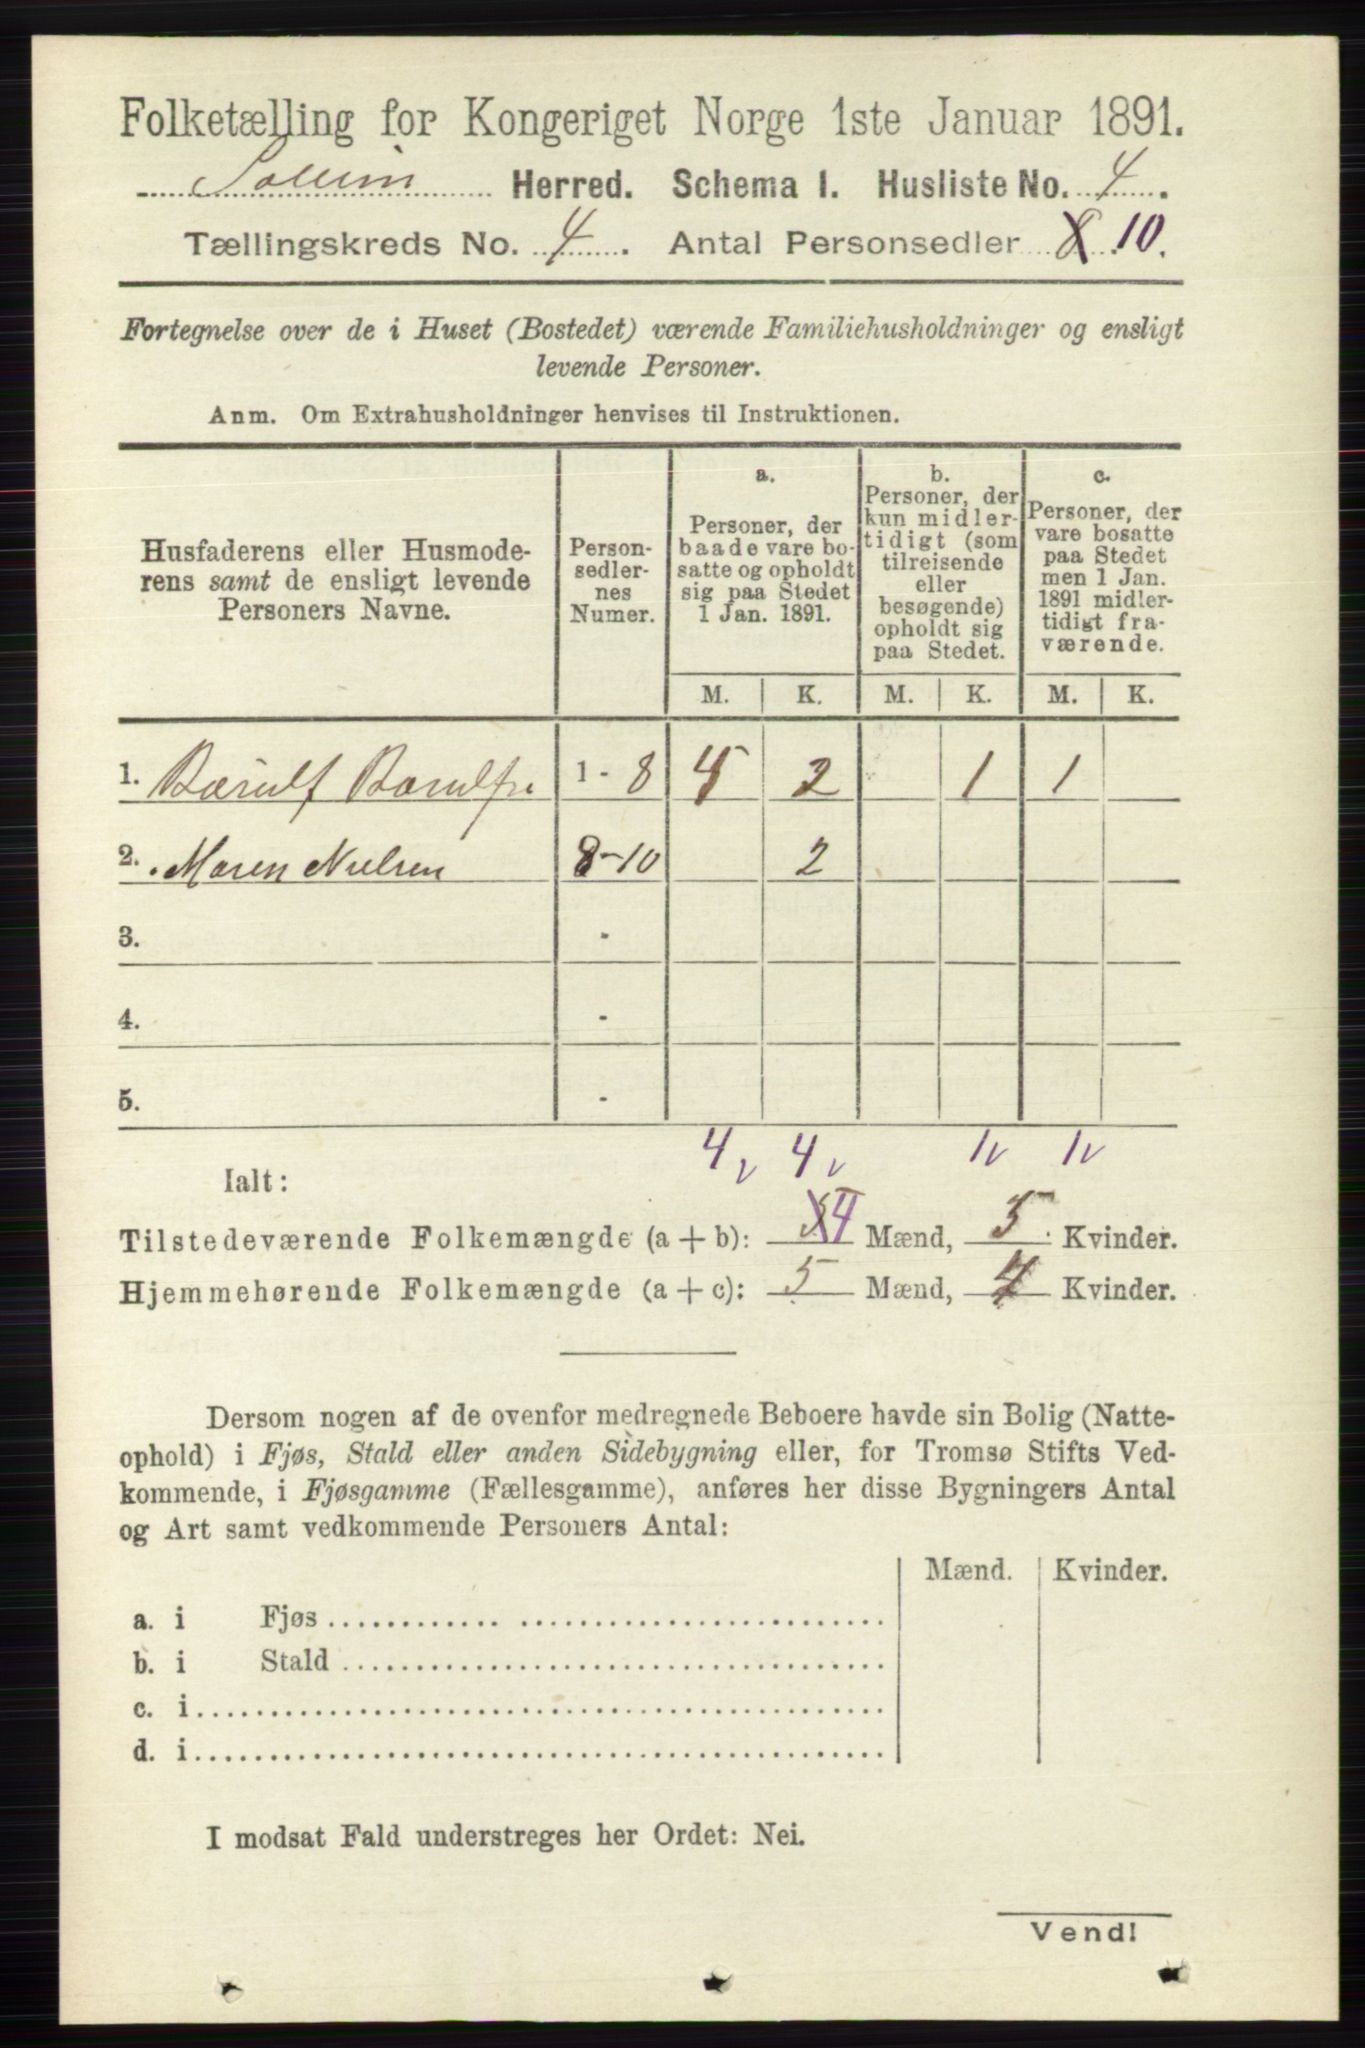 Folketælling for Kongeriget Norge 1ste Januar 1891.
Herred. Schema I. Husliste No. 4.
Tællingskreds No. 4. Antal Personsedler 8 10.
Fortegnelse over de i Huset (Bostedet) værende Familiehusholdninger og ensligt
levende Personer.
Anm. Om Extrahusholdninger henvises til Instruktionen.
Husfaderens eller Husmode-
rens samt de ensligt levende
Personers Navne.
Person-
sedler-
nes
Numer.
a.
Personer, der
baade vare bo-
satte og opholdt
sig paa Stedet
1 Jan. 1891.
b.
Personer, der
kun midler-
tidigt (som
tilreisende
eller
besøgende)
opholdt sig
paa Stedet.
c.
Personer, der
vare bosatte
paa Stedet
men 1 Jan.
1891 midler-
tidigt fra-
værende.
M. K. M. K. M. K.
1. 1 - 8 2 1 1
2. Maren Nielsen 8-10 2
3. -
4. -
5. -
4 v 4 v 1v 1v
Ialt:
Tilstedeværende Folkemængde (a + b): 4 Mænd, 5 Kvinder.
Hjemmehørende Folkemængde (a + c): 5 Mænd, 4 Kvinder.
Dersom nogen af de ovenfor medregnede Beboere havde sin Bolig (Natte-
ophold) i Fjøs, Stald eller anden Sidebygning eller, for Tromsø Stifts Ved-
kommende, i Fjøsgamme (Fællesgamme), anføres her disse Bygningers Antal
og Art samt vedkommende Personers Antal:
Mænd. Kvinder.
a. i Fjøs
b. i Stald
c. i
d. i
I modsat Fald understreges her Ordet: Nei.
Vend!